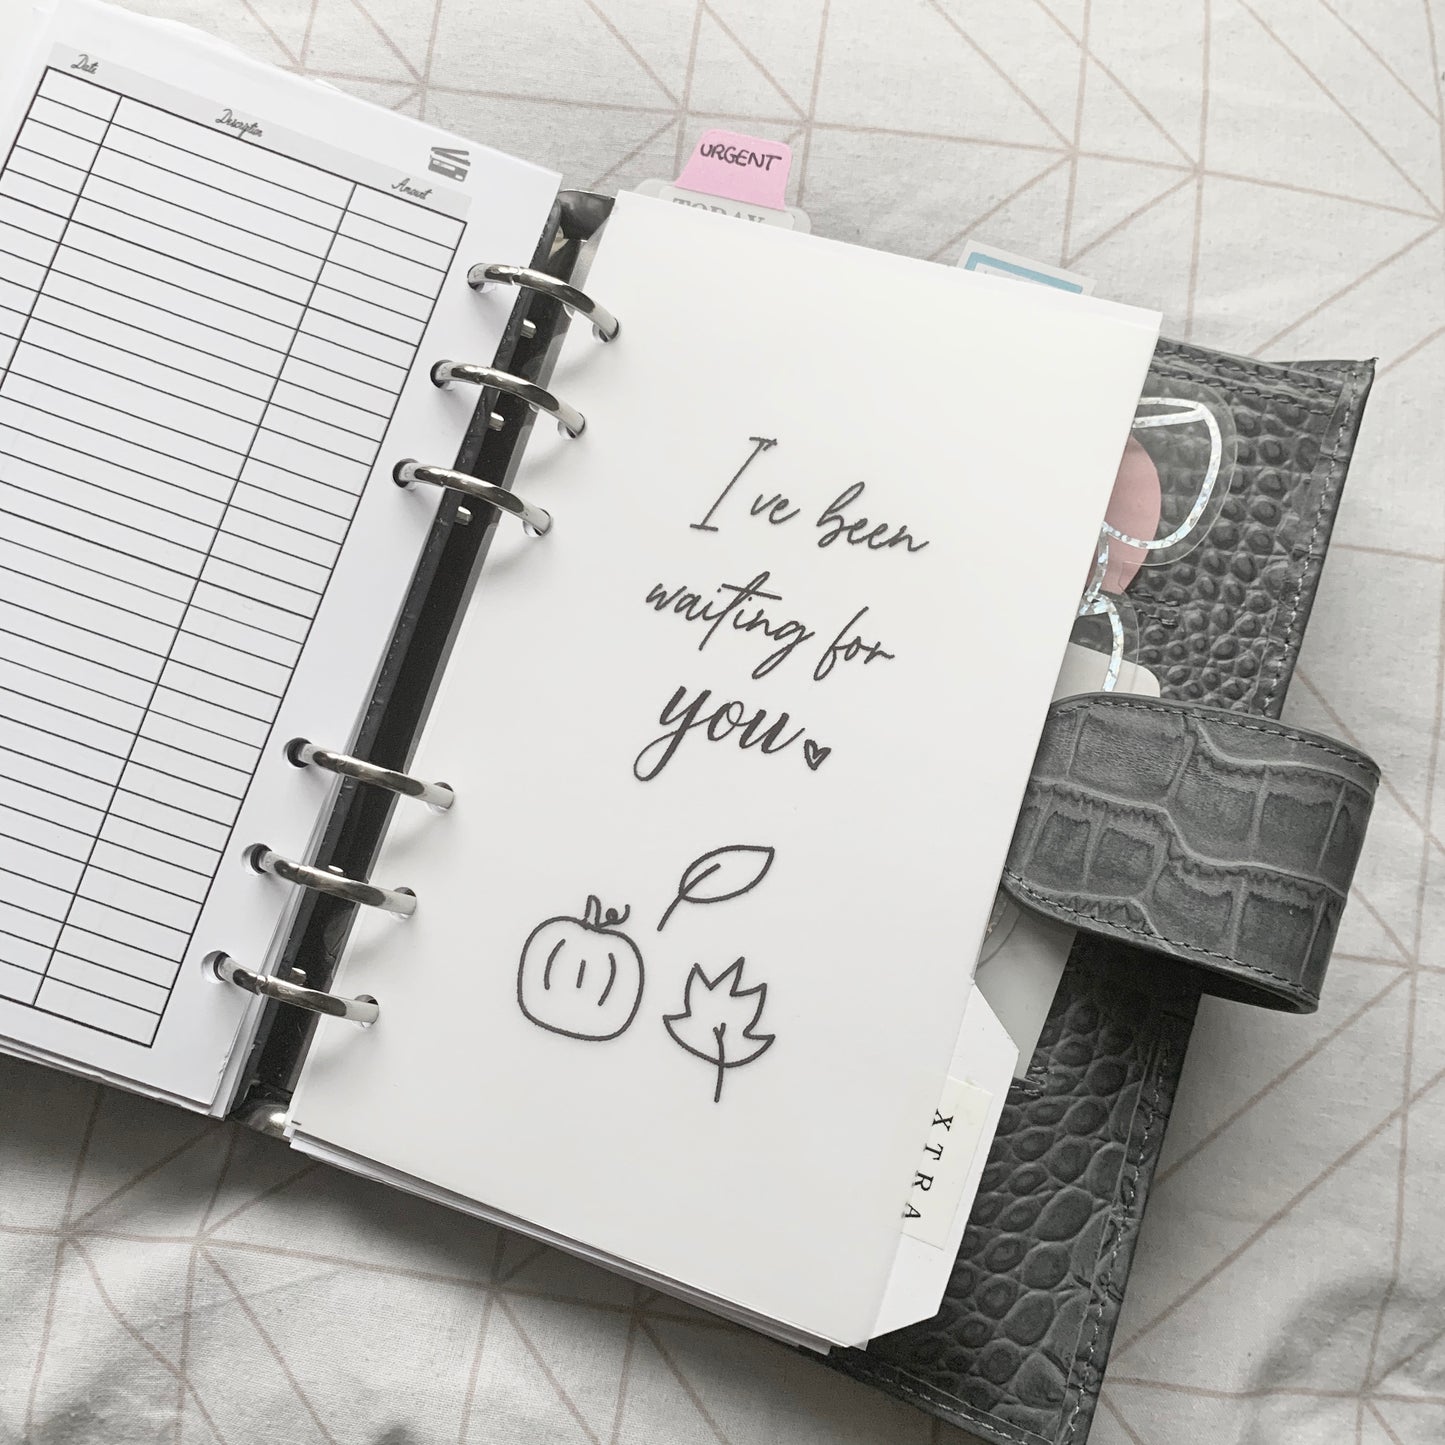 Date
Description
Amount
URGENT
TODAY
I've been
waiting for
you
XTRA